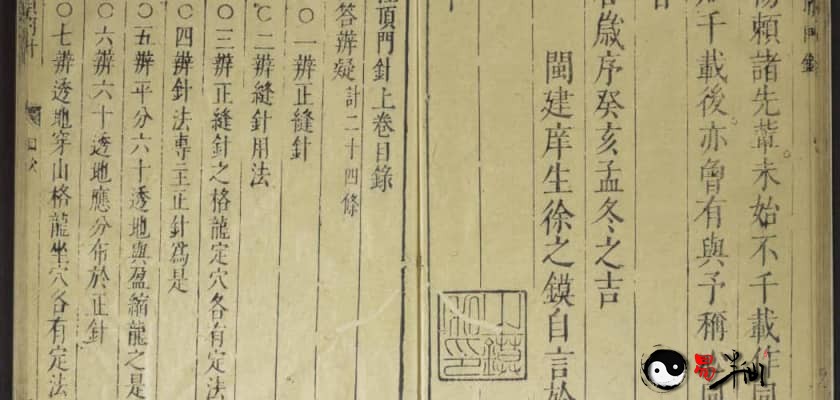 楊賴諸先輩未始不千載作同
千載後亦會有與予稱
歲序癸亥孟冬之吉
閩建庠生徐之鏌自言於
頂門針上卷目錄
答辨疑計二十四條
○一辨正縫針
○二辨縫針用法
○三辨正縫針之格龍定穴各有定法
○四辨針法專主正針為是
○五辨平分六十透地與盈縮龍之是
○六辨六十透地應分布於正針
○七辨透地穿山格龍坐穴各有定法